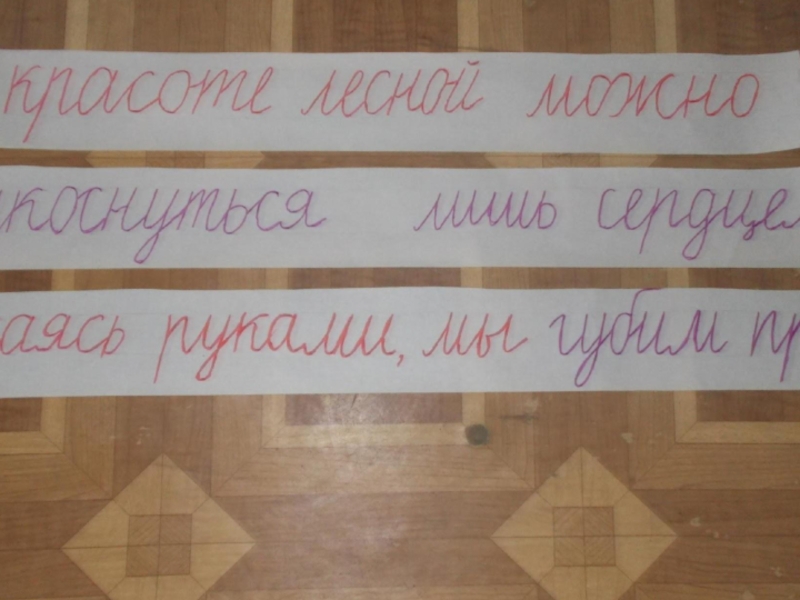 красоте лесной можно
коснуться лишь сердцем
аясь руками, мы губим пр